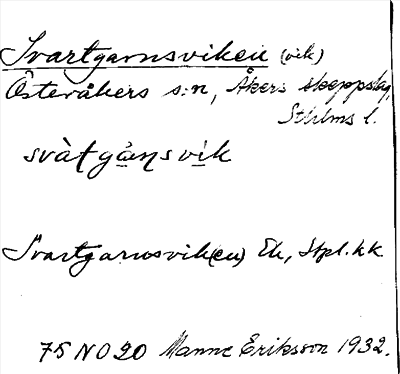 Svartgarnsviken (vik)
Österåkers s:n, Åkers skeppslag,
Sthlms l.
svàtgȧṇsvik
Svartgarnsvik(en) Ek, Stpl.kk
75 NO 20 Manne Eriksson 1932.